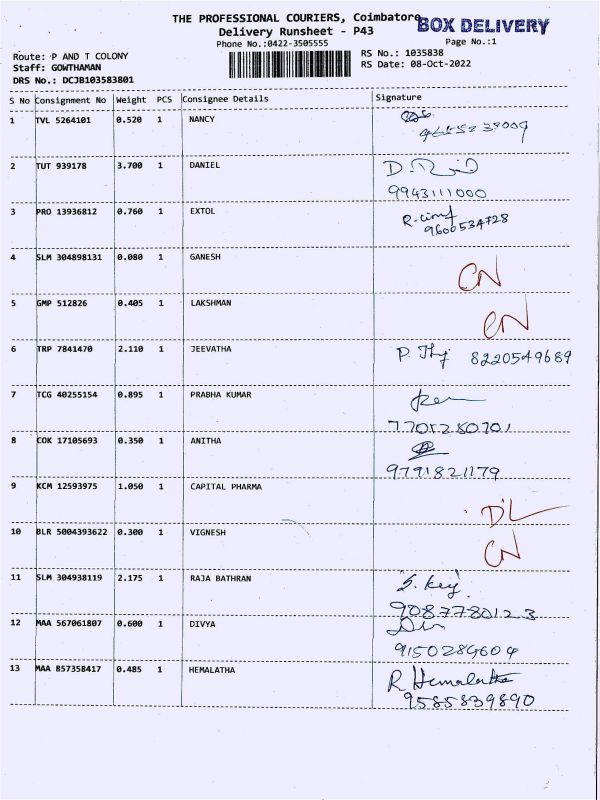 THE PROFESSIONAL COURIERS, Coimbatore
BOX DELIVERY
Delivery Runsheet - P43
Phone No.:0422-3505555
Page No.:1
Route: P AND T COLONY
RS No.: 1035838
Staff: GOWTHAMAN
RS Date: 08-Oct-2022
DRS No.: DCJB103583801
S No Consignment No Weight PCS Consignee Details Signature
1 TVL 5264101 0.520 1 NANCY
2 TUT 939178 3.700 1 DANIEL
9943111000
3 PRO 13936812 0.760 1 EXTOL
9600534728
4 SLM 304898131 0.080 1 GANESH
CN
5 GMP 512826 0.405 1 LAKSHMAN
CN
6 TRP 7841470 2.110 1 JEEVATHA 8220549689
7 TCG 40255154 0.895 1 PRABHA KUMAR
8 COK 17105693 0.350 1 ANITHA
9791821179
9 KCM 12593975 1.050 1 CAPITAL PHARMA
DL
10 BLR 5004393622 0.300 1 VIGNESH
CN
11 SLM 304938119 2.175 1 RAJA BATHRAN
9087780123
12 MAA 567061807 0.600 1 DIVYA
9150284604
13 MAA 857358417 0.485 1 HEMALATHA
R Hemalatha
9585839890